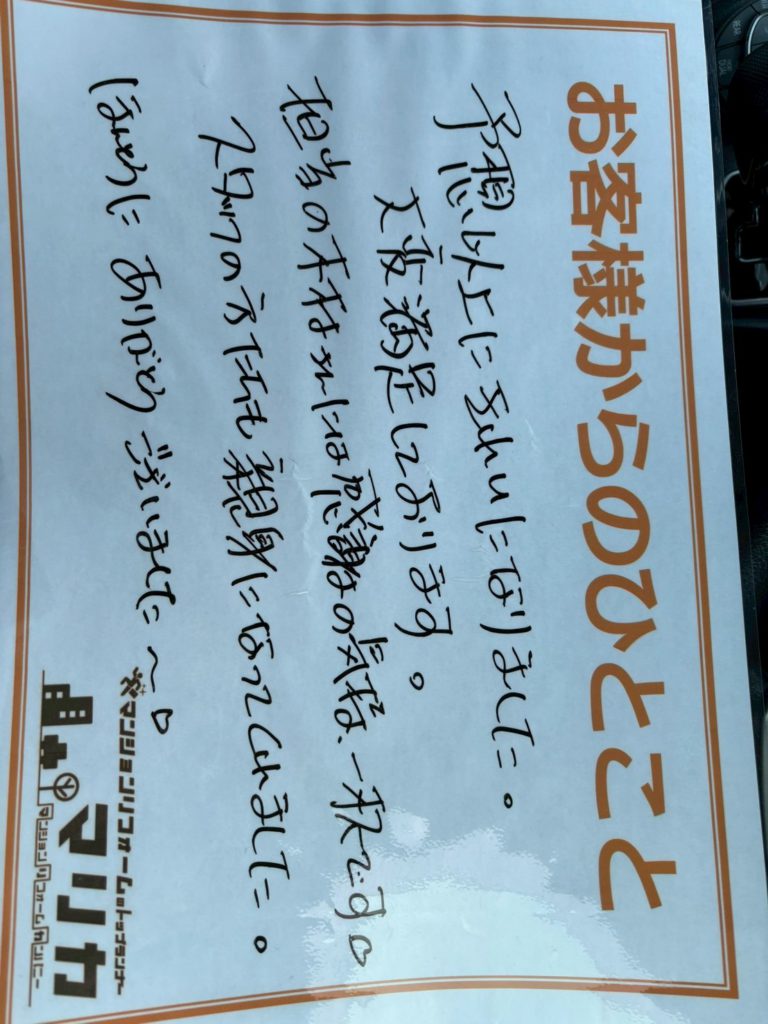 お客様からのひとこと
予想以上にきれいになりました。
大変満足しております。
担当の木村さんには感謝の気持で一杯です。
スタッフの方たちも親身になってくれました。
ほんとうにありがとうございました〜。
マンションリフォームのトップランナー
マリカ
マンションリフォームカンパニー